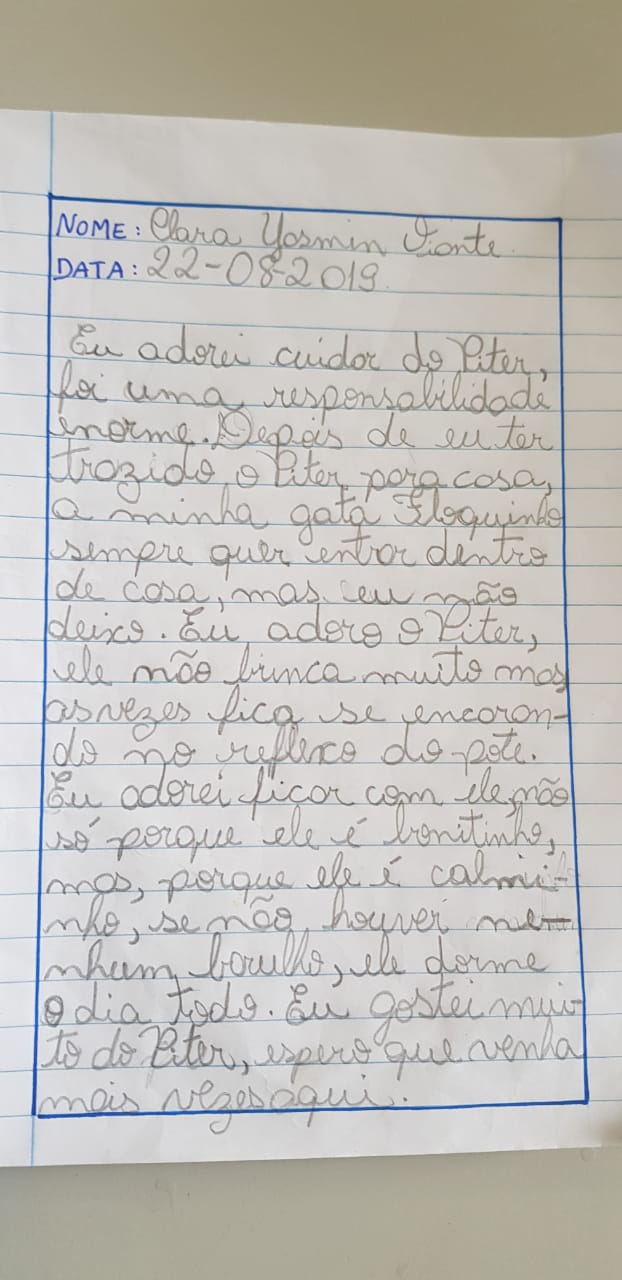 NOME: Clara Yasmin
DATA: 22-08-2019
Eu adorei cuidar do Piter,
foi uma responsabilidade
enorme. Depois de eu ter
trazido o Piter para casa,
a minha gata Floquinho
sempre quer entrar dentro
de casa, mas eu não
deixo. Eu adoro o Piter,
ele não brinca muito mas
as vezes fica se encaran-
do no reflexo do pote.
Eu adorei ficar com ele, não
só porque ele é bonitinho,
mas, porque ele é calmi-
nho, se não houver ne-
nhum barulho, ele dorme
o dia todo. Eu gostei mui-
to do Piter, espero que venha
mais vezes aqui.